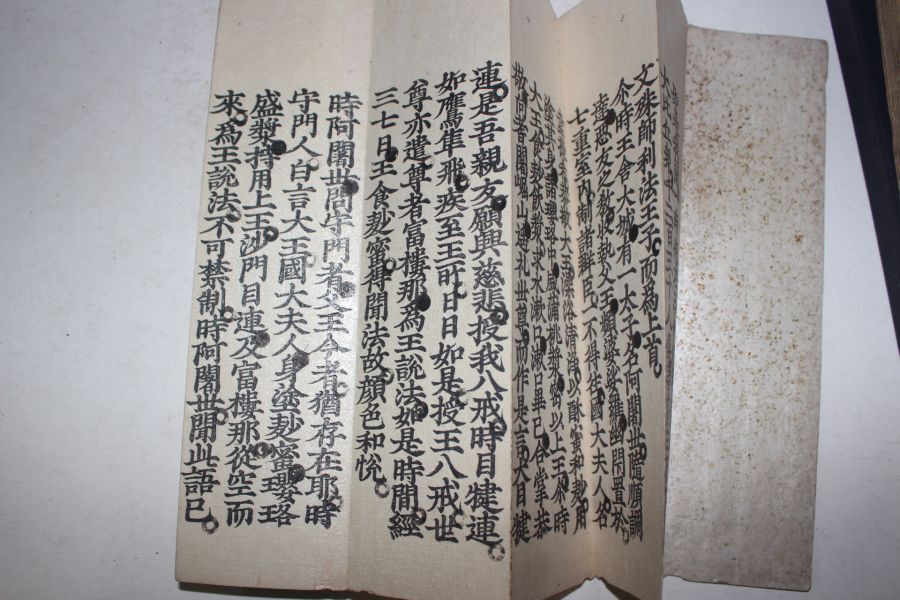 文殊師利法王子而為上首
尒時王舍大城有一太子名阿闍世隨順調
達惡友之教收執父王頻婆娑羅幽閇置於
七重室內制諸群臣一不得往國大夫人名
敬大王澡浴清淨以酥蜜和麨用
塗其身諸瓔珞中盛蒲桃漿密以上王尒時
大王食麨飲漿求水漱口漱口畢已合掌恭
敬向耆闍崛山遥礼世尊而作是言大目犍
連是吾親友願興慈悲授我八戒時目犍連
如鷹隼飛疾至王所日日如是授王八戒世
尊亦遣尊者富樓那為王說法如是時間經
三七日王食麨蜜得聞法故顏色和悅
時阿闍世問守門者父王今者猶存在耶時
守門人白言大王國大夫人身塗麨蜜瓔珞
盛漿持用上王沙門目連及富樓那從空而
來為王說法不可禁制時阿闍世聞此語已